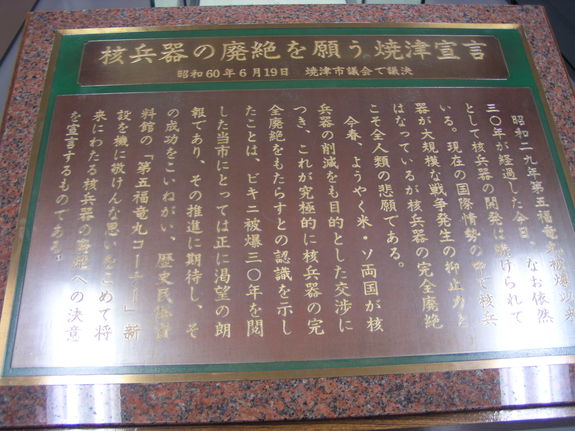 核兵器の廃絶を願う焼津宣言
昭和60年6月19日　焼津市議会で議決
昭和二九年第五福竜丸被爆以来
三〇年が経過した今日、なお依然
として核兵器の開発は続けられて
いる。現在の国際情勢の中で核兵
器が大規模な戦争発生の抑止力と
はなっているが核兵器の完全廃絶
こそ全人類の悲願である。
今春、ようやく米・ソ両国が核
兵器の削減をも目的とした交渉に
つき、これが究極的に核兵器の完
全廃絶をもたらすとの認識を示し
たことは、ビキニ被爆三〇年を閲
した当市にとっては正に渇望の朗
報であり、その推進に期待し、そ
の成功をこいねがい、歴史民俗資
料館の「第五福竜丸コーナー」新
設を機に敬けんな思いをこめて将
来にわたる核兵器の廃絶への決意
を宣言するものである。